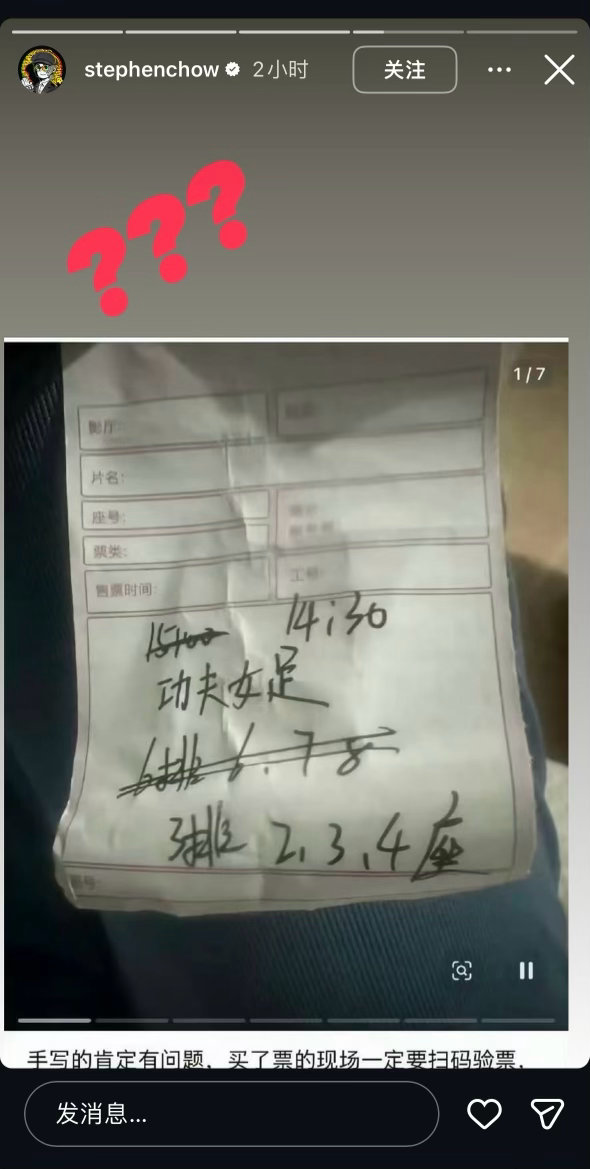 stephenchow 2小时 关注
???
1/7
影厅:
片名:
座号:
票类:
工号:
售票时间:
15:00 14:30
功夫女足
6排 6、7、8
3排 2、3、4座
手写的肯定有问题，买了票的现场一定要扫码验票，
发消息...